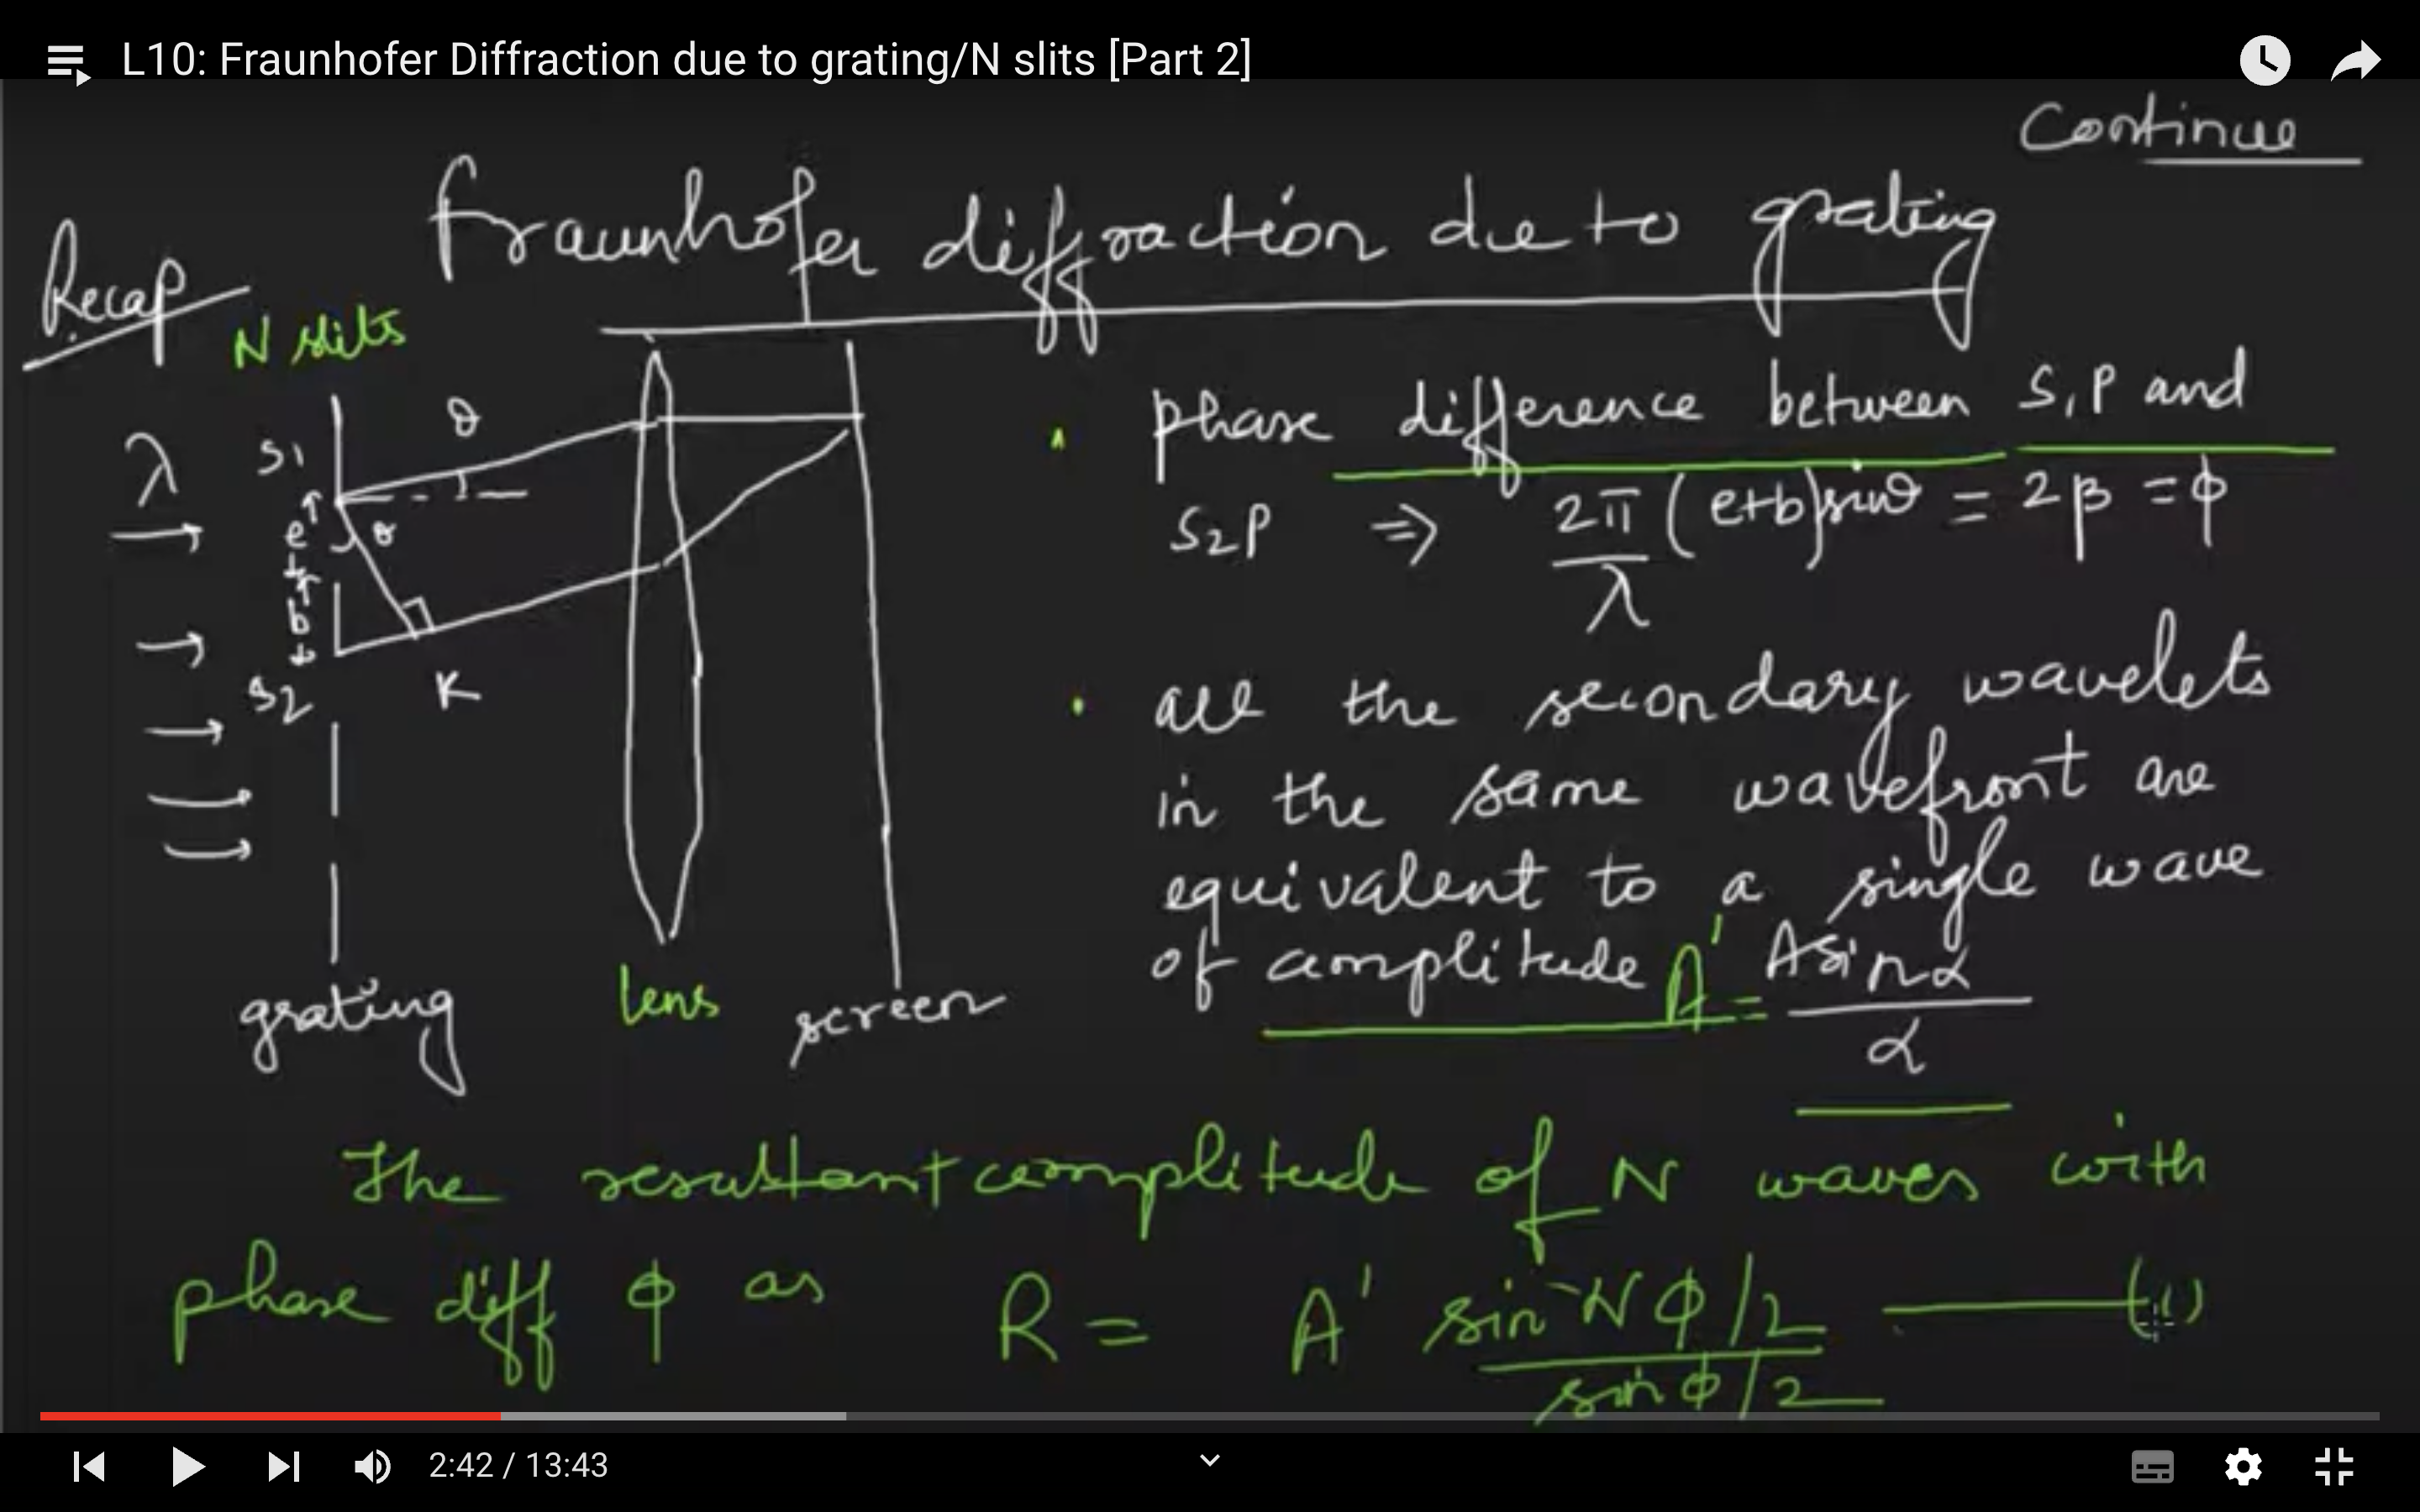 L10: Fraunhofer Diffraction due to grating/N slits [Part 2]
Continue
Fraunhofer diffraction due to grating
Recap
N slits
λ
S1
θ
e
θ
b
S2
K
grating
lens
screen
phase difference between S1P and
S2P ⇒ 2π/λ (e+b)sinθ = 2β = ϕ
all the secondary wavelets
in the same wavefront are
equivalent to a single wave
of amplitude A' = A sin α / α
The resultant amplitude of N waves with
phase diff ϕ as R = A' sin Nϕ/2 / sin ϕ/2 —— (1)
2:42 / 13:43